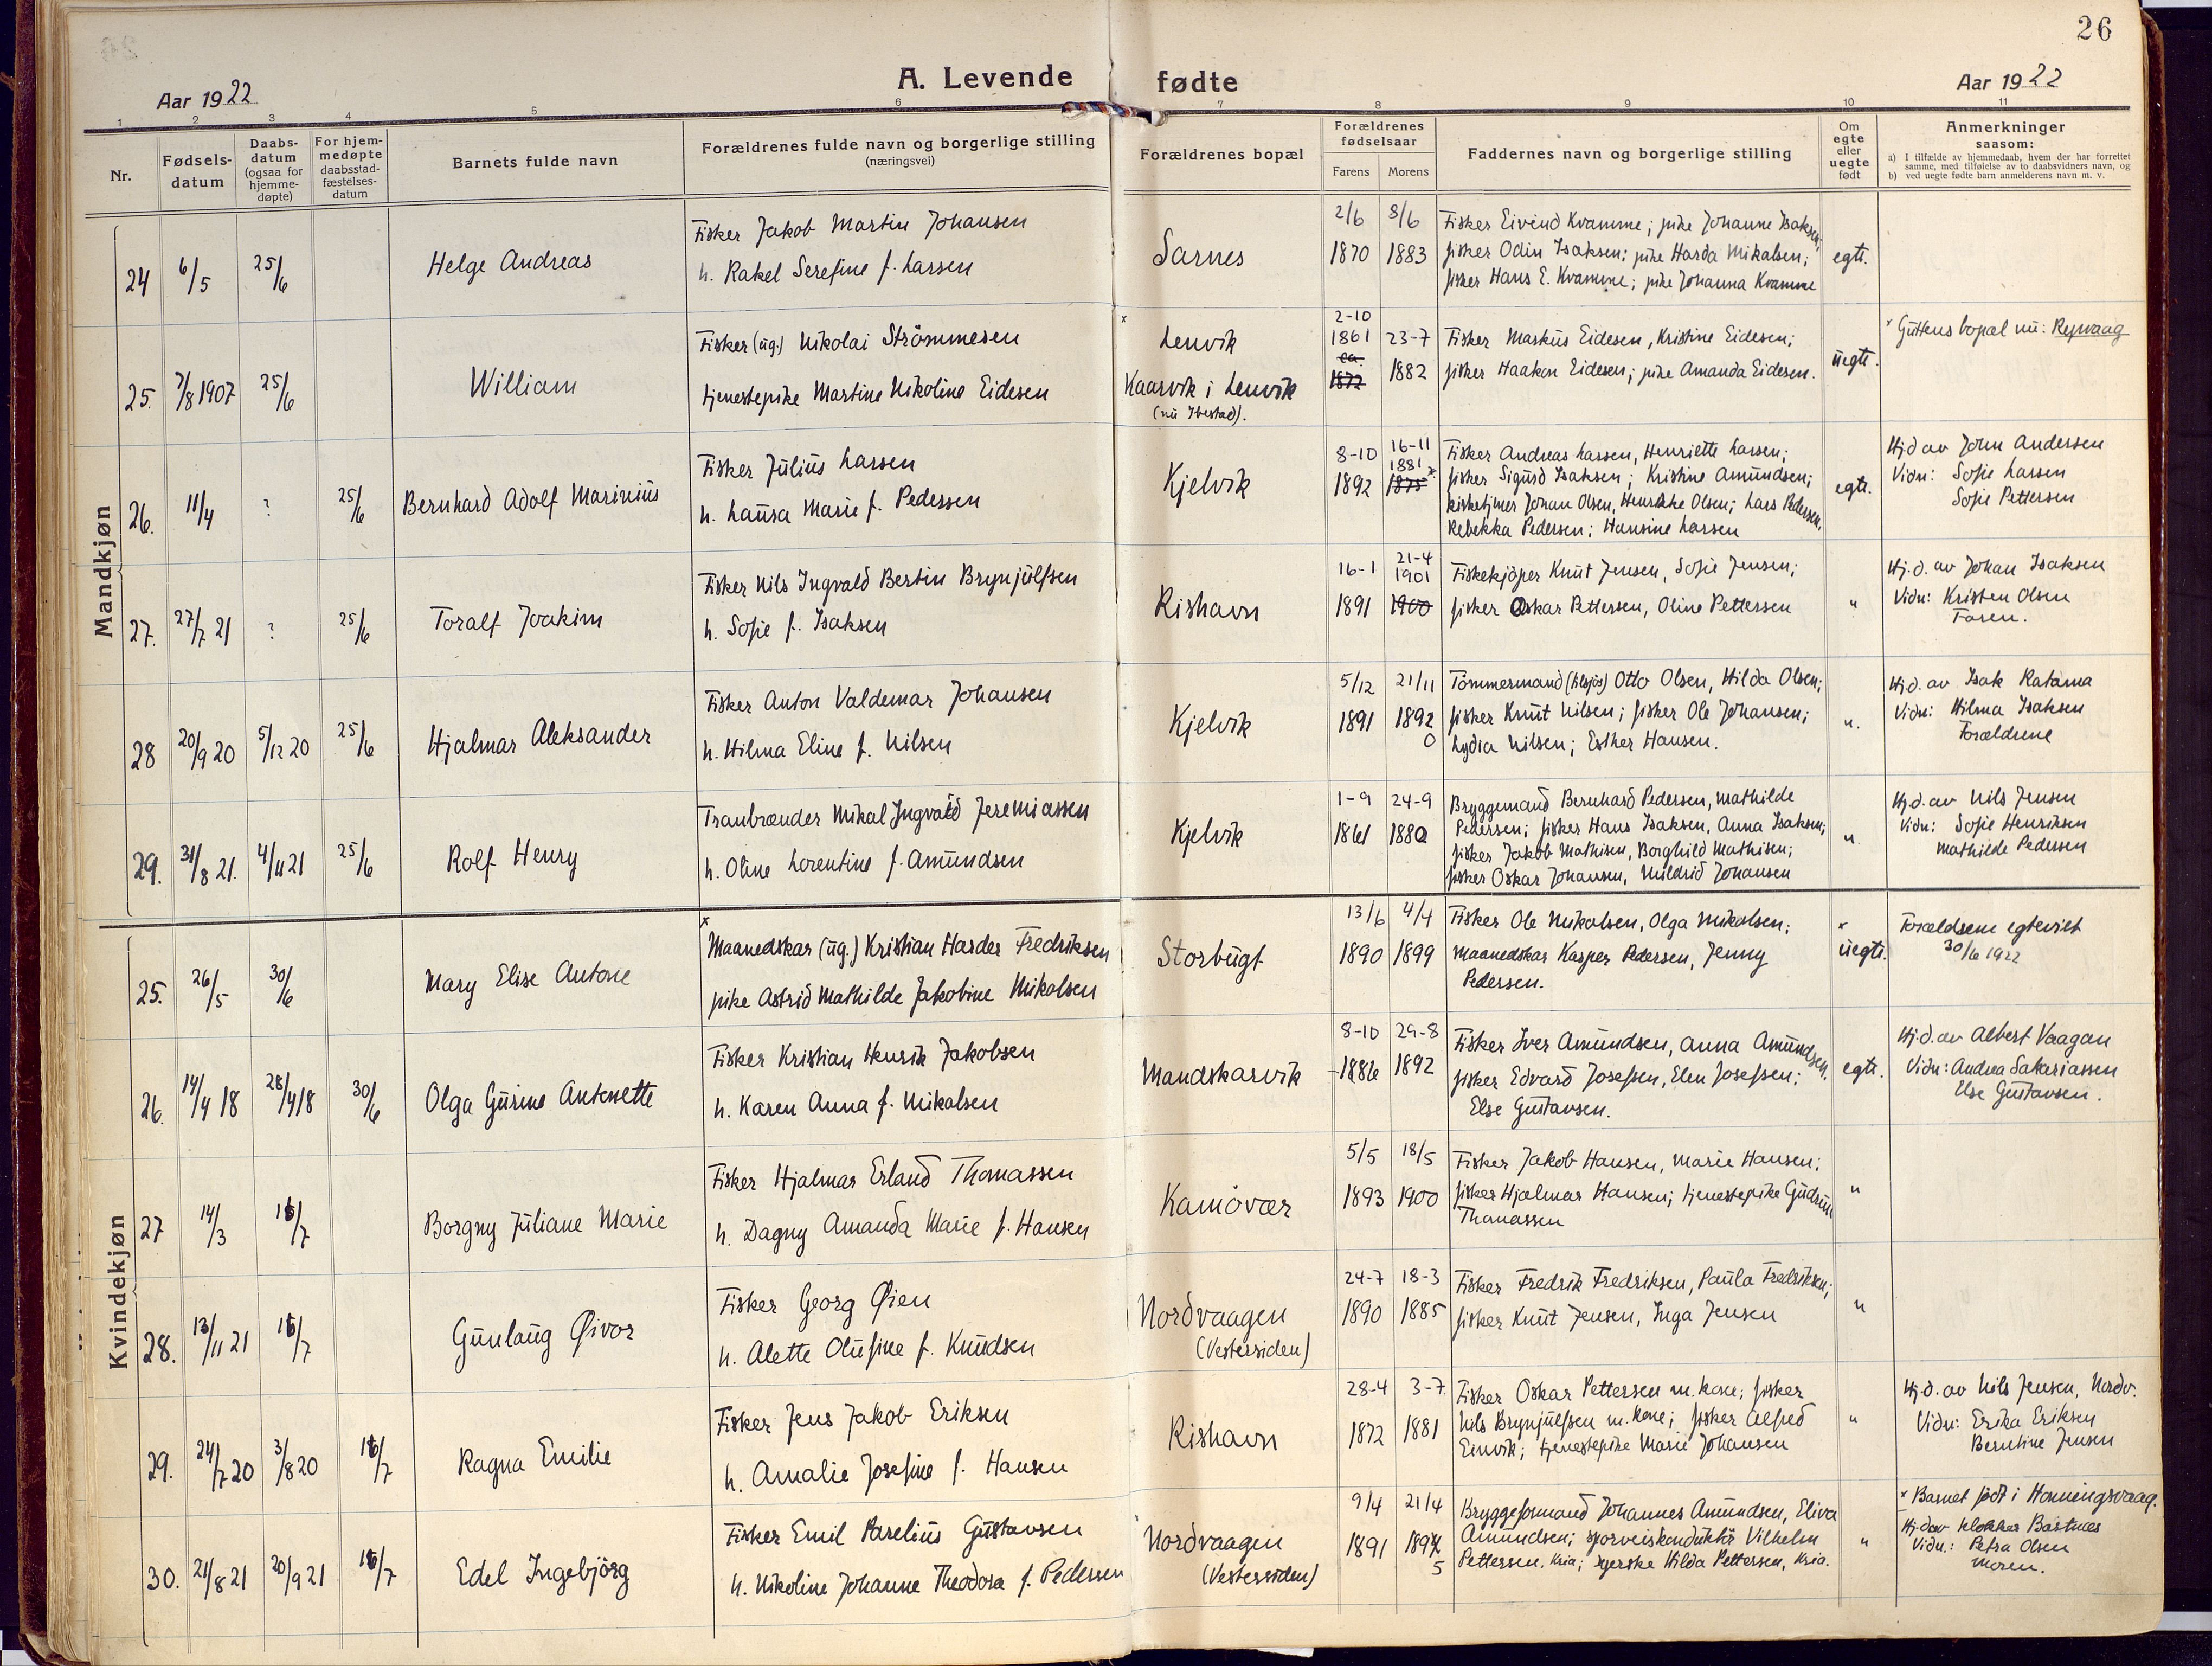 26
Aar 1922
A. Levende fødte
Aar 1922
1 2 3 4 5 6 7 8 9 10 11
Nr.
Fødsels-
datum
Daabs-
datum
(ogsaa for
hjemme-
døpte)
For hjem-
medøpte
daabsstad-
fæstelses-
datum
Barnets fulde navn
Forældrenes fulde navn og borgerlige stilling
(næringsvei)
Forældrenes bopæl
Forældrenes
fødselsaar
Farens Morens
Faddernes navn og borgerlige stilling
Om
egte
eller
uegte
født
Anmerkninger
saasom:
a) I tilfælde av hjemmedaab, hvem der har forrettet
samme, med tilføielse av to daabsvidners navn, og
b) ved uegte fødte barn anmelderens navn m. v.
Mandkjøn
24 6/5 25/6
Helge Andreas
Fisker Jakob Martin Johansen
h. Rakel Serefine f. Larsen
Sarnes
2/6 8/6
1870 1883
Fisker Eivind Kvamme; pike Johanne Isaksen;
fisker Odin Isaksen; pike Harda Mikalsen;
fisker Hans E. Kvamme; pike Johanna Kvamme
egte.
25. 7/8 1907 25/6
William
Fisker (ug.) Nikolai Strømmesen
tjenestepike Martine Nikoline Eidesen
x Lenvik
Kaarvik i Lenvik
(nu Ibestad).
2-10
1861 23-7
ca.
1872 1882
Fisker Markus Eidesen, Kristine Eidesen;
fisker Haakon Eidesen; pike Amanda Eidesen.
uegte.
x Guttens bopæl nu: Repvaag
26. 11/4 ? 25/6
Bernhard Adolf Marinius
Fisker Julius Larsen
h. Laura Marie f. Pedersen
Kjelvik
8-10 16-11
1881
1892 1875 x
Fisker Andreas Larsen, Henriette Larsen;
fisker Sigurd Isaksen; Kristine Amundsen;
kirketjener Johan Olsen, Henrikke Olsen; Lars Pedersen,
Rebekka Pedersen; Hansine Larsen
egte.
Hj.d av John Andersen
Vidn: Sofie Larsen
Sofie Pettersen
27. 27/7 21 ? 25/6
Toralf Joakim
Fisker Nils Ingvald Bertin Brynjulfsen
h. Sofie f. Isaksen
Rishavn
16-1 21-4
1901
1891 1900
Fiskekjøper Knut Jensen, Sofie Jensen;
fisker Oskar Pettersen, Oline Pettersen
"
Hj.d. av Johan Isaksen
Vidn: Kristen Olsen
Faren.
28 20/9 20 5/12 20 25/6
Hjalmar Aleksander
Fisker Anton Valdemar Johansen
h. Hilma Eline f. Nilsen
Kjelvik
5/12 21/11
1891 1892
0
Tømmermand Otto Olsen, Hilda Olsen;
fisker Knut Nilsen; fisker Ole Johansen;
Lydia Nilsen; Esther Hansen.
"
Hj.d. av Isak Ratama
Vidn: Hilma Isaksen
Forældrene
29. 31/8 21. 4/11 21 25/6
Rolf Henry
Tranbrænder Mikal Ingvald Jeremiassen
h. Oline Lorentine f. Amundsen
Kjelvik
1-9 24-9
1861 1880
Bryggemand Bernhard Pedersen, Mathilde
Pedersen; fisker Hans Isaksen, Anna Isaksen;
fisker Jakob Mathisen, Borghild Mathisen;
fisker Oskar Johansen, Mildrid Johansen
"
Hj.d. av Nils Jensen
Vidn: Sofie Henriksen
Mathilde Pedersen
Kvindekjøn
25. 26/5 30/6
Mary Elise Antone
x
Maanedskar (ug.) Kristian Harder Fredriksen
pike Astrid Mathilde Jakobine Mikalsen
Storbugt
13/6 4/4
1890 1899
Fisker Ole Mikalsen, Olga Mikalsen;
maanedskar Kasper Pedersen, Jenny
Pedersen.
x
uegte.
Forældrene egteviet
30/6 1922
26. 14/4 18 28/4 18 30/6
Olga Gurine Antonette
Fisker Kristian Henrik Jakobsen
h. Karen Anna f. Mikalsen
Mandskarvik
8-10 29-8
1886 1892
Fisker Iver Amundsen, Anna Amundsen.
fisker Edvard Josefsen, Elen Josefsen;
Else Gustavsen.
egte.
Hj.d. av Albert Vaagan
Vidn: Andrea Sakariassen
Else Gustavsen.
27 14/3 16/7
Borgny Juliane Marie
Fisker Hjalmar Erland Thomassen
h. Dagny Amanda Marie f. Hansen
Kamøvær
5/5 18/5
1893 1900
Fisker Jakob Hansen, Marie Hansen;
fisker Hjalmar Hansen; tjenestepike Gudrun
Thomassen
"
28. 13/11 21 16/7
Gunlaug Øivor
Fisker Georg Øien
h. Alette Olufine f. Knudsen
Nordvaagen
(Vestersiden)
24-7 18-3
1890 1885
Fisker Fredrik Fredriksen, Paula Fredriksen;
fisker Knut Jensen, Inga Jensen
"
29. 24/7 20 3/8 20 16/7
Ragna Emilie
Fisker Jens Jakob Eriksen
h. Amalie Josefine f. Hansen
Rishavn
28-4 3-7
1872 1881
Fisker Oskar Pettersen m. kone; fisker
Nils Brynjulfsen m. kone; fisker Alfred
Einvik; tjenestepike Marie Johansen
"
Hj.d. av Nils Jensen, Nordv.
Vidn: Erika Eriksen
Berntine Jensen
30. 21/8 21 20/9 21 16/7
Edel Ingebjørg
Fisker Emil Parelius Gustavsen
h. Nikoline Johanne Theodora f. Pedersen
Nordvaagen
(Vestersiden)
9/4 21/4
1891 1894
5
Bryggeformand Johannes Amundsen, Eliva
Amundsen; sporveiskonduktør Vilhelm
Pettersen, Kria; syerske Hilda Pettersen, Kria.
"
x Barnet født i Honningsvaag.
Hj.d av klokker Bastnes
Vidn.: Petra Olsen
Moren.